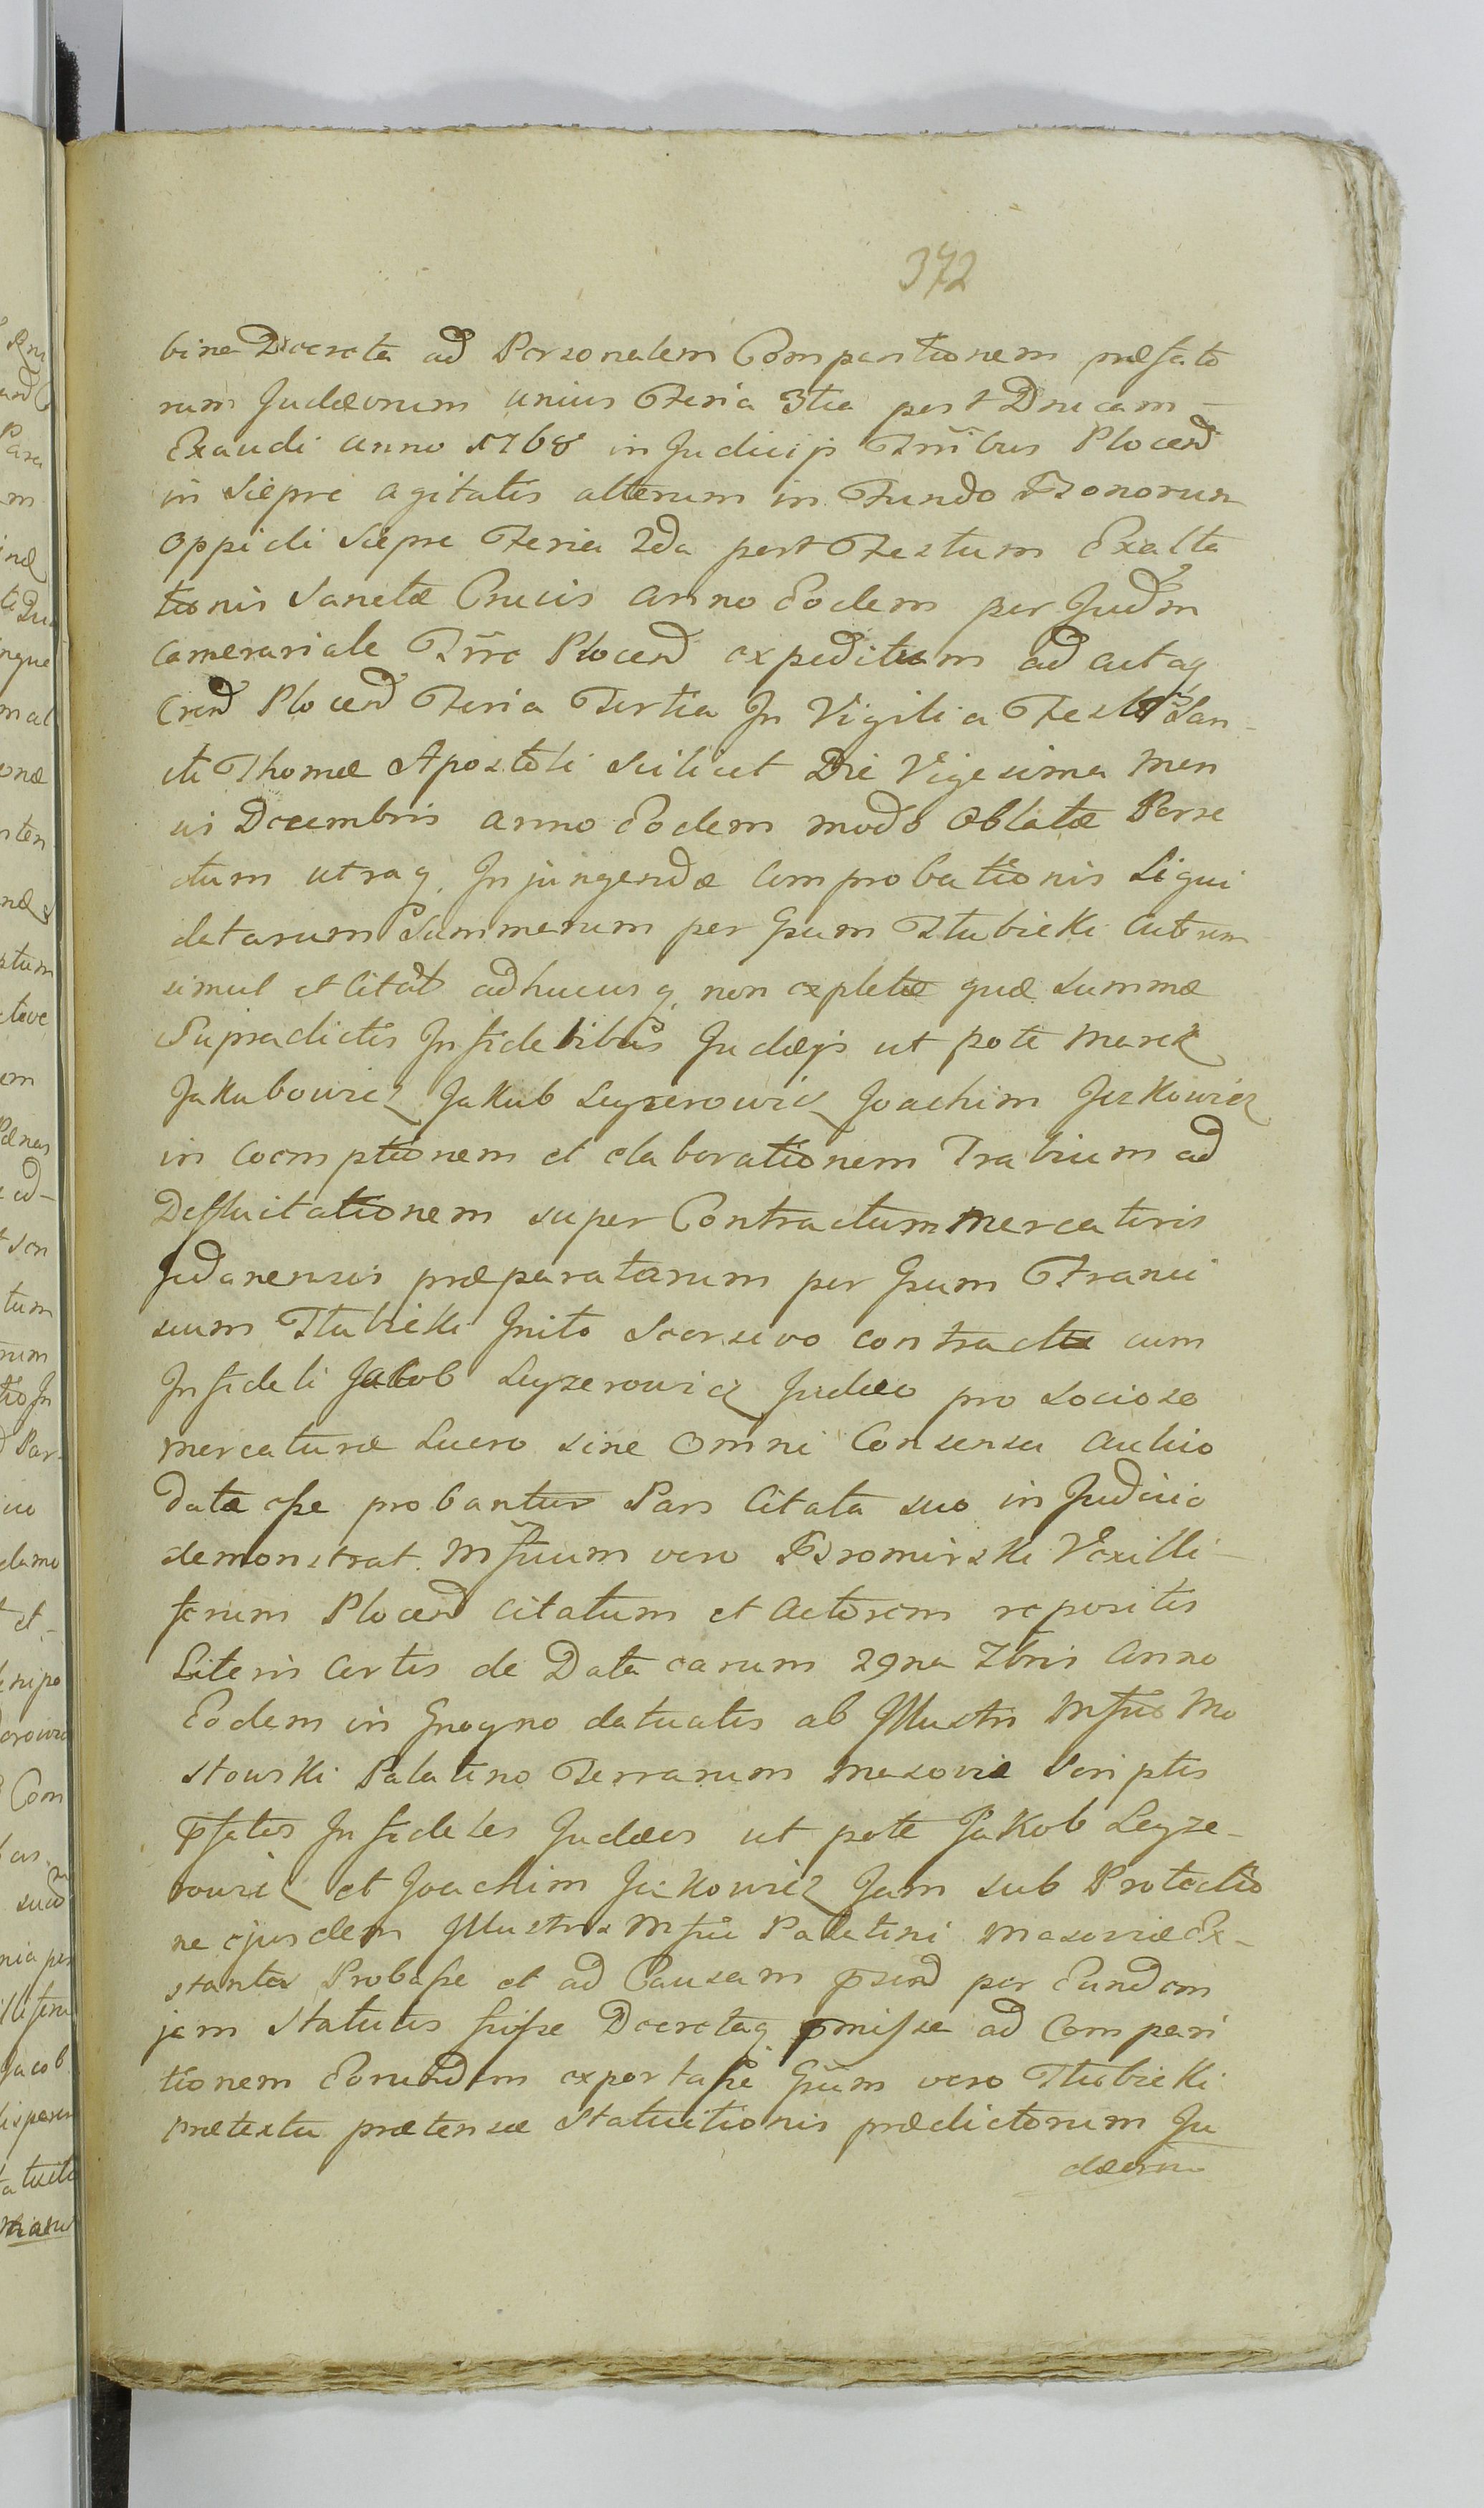 372
bina Decreta ad Personalem Comparitionem præfato
rum Judæorum unius Feria 3tia post Dnicam
Exaudi anno 1768 in Judicijs Trribus Plocen
in Siepre agitatis alterum in Fundo Bonorum
Oppidi Siepre Feria 2da post Festum Exalta
tionis Sanctæ Crucis anno Eodem per Judm
Camerariale Trre Plocen expeditum ad actaq
Cren Plocen Feria Tertia In Vigilia Festi San
cti Thomæ Apostoli scilicet Die Vigesima Men
sis Decembris anno Eodem modo Oblatæ Perre
ctum utraq Injungendæ Comprobationis Liqui
datarum Summarum per Gsum Ttubicki Actorem
simul et Citat adhucusq non expletæ quæ Summæ
Supradictis Infidelibus Judæjs ut pote Marek
Jakubowicz Jakub Leyzerowicz Joachim Jckowicz
in Coemptionem et elaborationem Trabium ad
Defluitationem super Contractum Mercatoris
Gedanensis præparatarum per Gsum Franci
scum Ttubicki Inito Seorsivo contractu cum
Infideli Jacob Leyzerowicz Judæo pro socioso
mercaturæ Lucro sine Omni Consensu Authio
datæ esse probantur Pars Citata suo in Judicio
demonstrat. Mficum vero Bromirski Vexilli
ferum Plocen Citatum et Actorem repositis
Literis Certis de Data earum 29na 7bris Anno
Eodem in Gnoyno datuatis ab Illustri Mfico Mo
stowski Palatino Terrarum Masoviæ Scriptis
pfatos Infideles Judæos ut pote Jakob Leyze
rowicz et Joachim Jckowicz Jam sub Protectio
ne ejusdem Illustris Mfici Palatini Masoviæ Ex
stantes Probasse et ad Causam psen per Eundem
jam Statutis fuisse Decretaq pmissa ad Compari
tionem Eorundem exportasse Gsum vero Ttubicki
prætextu prætensæ Statuitionis prædictorum Ju
dæorum